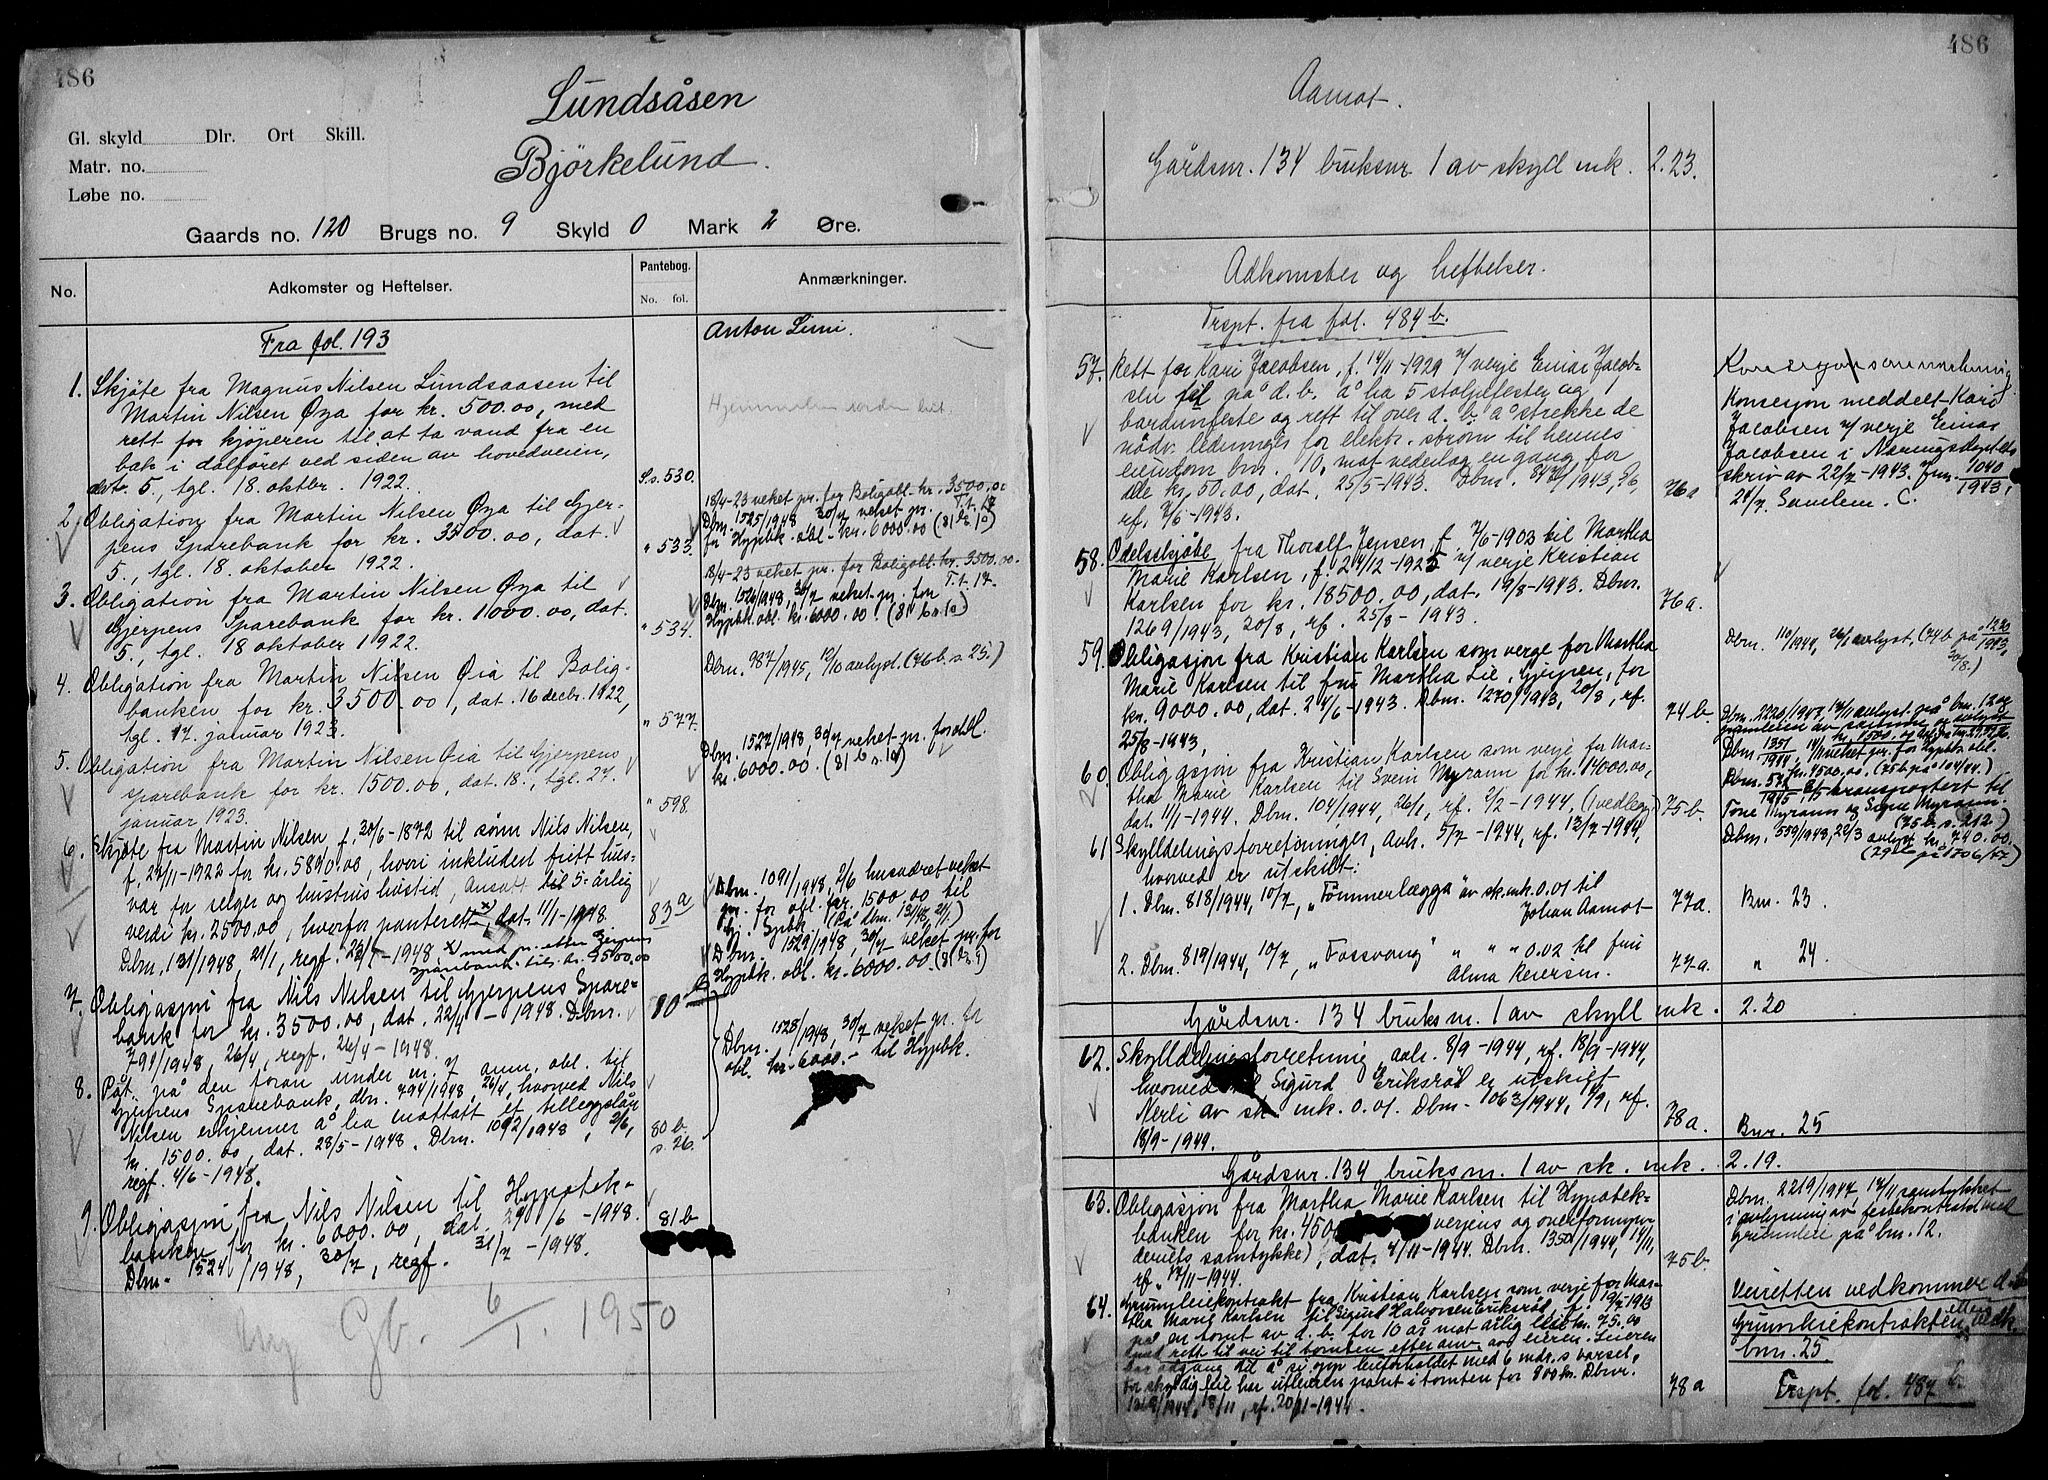 486
Lundsåsen
Bjørkelund.
Gl. skyld Dlr. Ort Skill.
Matr. no.
Løbe no.
Gaards no. 120 Brugs no. 9 Skyld 0 Mark 2 Øre.
No.
Adkomster og Heftelser.
Pantebog.
No. fol.
Anmærkninger.
Fra fol. 193
Anton Limi.
1. Skjøte fra Magnus Nilsen Lundsaasen til
Martin Nilsen Øya for kr. 500.00, med
rett for kjøperen til at ta vand fra en
bæk i dalføret ved siden av hovedveien,
dat. 5., tgl. 18. oktbr. 1922.
S.s. 530.
2. Obligation fra Martin Nilsen Øya til Gjer-
pens Sparebank for kr. 3500.00, dat.
5., tgl. 18. oktober 1922.
" 533.
18/4-23 veket pr. for Boligobl. kr. 3500.00
T.t. 17
Dbnr. 1525/1948 30/7 veket pr.
for Hypbk. obl. kr. 6000.00 (81 b s. 10)
3. Obligation fra Martin Nilsen Øya til
Gjerpens Sparebank for kr. 1000.00, dat.
5., tgl. 18 oktober 1922.
" 534.
18/4-23 veket pr. for Boligobl. kr. 3500.00.
T.t. 17.
Dbnr. 1526/1948, 30/7 veket pr. for
Hypbk. obl. kr. 6000.00. (81 b s. 10)
4. Obligation fra Martin Nilsen Øia til Bolig-
banken for kr. 3500.00, dat. 16 decbr. 1922,
tgl. 17. januar 1923.
" 577.
Dbnr. 987/1945, 12/10 avlyst. (76 b. s 25.)
5. Obligation fra Martin Nilsen Øia til Gjerpens
sparebank for kr. 1500.00, dat. 18., tgl. 27.
januar 1923.
" 598.
Dbnr. 1527/1948, 30/7 veket pr. for obl.
kr. 6000.00. (81 b s. 10)
6. Skjøte fra Martin Nilsen, f. 30/6-1872 til sønn Nils Nilsen,
f. 27/11-1922 for kr. 5890.00, hvori inkludert fritt hus-
vær for selger og hustrus livstid, Ansatt til 5-årlig
verdi kr. 2500.00, hvorfor panterett x), dat. 11/1-1948.
Dbnr. 131/1948, 21/1, regf. 26/1-1948. x) med pr. etter Gjerpens
sparebank kr. 3500.00
83 a
Dbnr. 1091/1948, 2/6 husværet veket
pr. for obl. kr. 1500.00 til
Gj. Spbk.
Dbnr. 1529/1948, 30/7 - veket pr. for
Hypbk. obl. kr. 6000.00. (81 b s 9)
7. Obligasjon fra Nils Nilsen til Gjerpens Spare-
bank for kr. 3500.00, dat. 22/4 - 1948. Dbnr.
791/1948 26/4, regf. 26/4-1948.
80
8. Påt. på den foran under nr. 7 anm. obl. til
Gjerpens Sparebank, dbnr. 794/1948, 26/4, hvorved Nils
Nilsen erkjenner å ha mottatt et tilleggslån
kr. 1500.00, dat. 28/5-1948. Dbnr. 1092/1948, 2/6,
regf. 4/6-1948.
80 b
s. 26.
Dbnr. 1528/1948, 30/7 veket pr. for
obl. kr. 6000.- til Hypbk.
9. Obligasjon fra Nils Nilsen til Hypotek-
banken for kr. 6000.00, dat. 29/6-1948.
Dbnr. 1524/1948, 30/7, regf. 31/7-1948.
81 b
ny Gb. 6/1. 1950
486
Aamot.
Gårdsnr. 134 bruksnr. 1 av skyld mk. 2.23.
Adkomster og heftelser.
Trspt. fra fol. 484 b.
57. Rett for Kari Jacobsen, f. 14/11-1929 v/ verje Einar Jacob-
sen til på d. b. å ha 5 stolpefester og
bardunfeste og rett til over d. b. å strekke de
nødv. ledninger for elektr. strøm til hennes
eiendom bnr. 10, mot vederlag en gang for
alle kr. 50.00, dat. 25/5-1943. Dbnr. 847/1943, 7/6,
rf. 7/6-1943.
76 a
Konsesjon meddelt Kari
Jacobsen v/ verje Einar
Jacobsen i Næringsdept.ets
skriv av 22/7-1943. Jnr. 1040/1943,
28/7 Samlem. C.
58. Odelsskjøte fra Thorolf Jensen, f. 7/6-1903 til Martha
Marie Karlsen, f. 24/12-1925 v/ verje Kristian
Karlsen for kr. 18500.00, dat. 19/8-1943. Dbnr.
1269/1943, 20/8, rf. 25/8-1943.
76a.
59. Obligasjon fra Kristian Karlsen som verge for Martha
Marie Karlsen til fru Martha Lie, Gjerpen, for
kr. 9000.00, dat. 24/6-1943. Dbnr. 1270/1943, 20/8, rf.
25/8-1943,
74 b
Dbnr. 110/1944, 26/1 avlyst. (74 b på 1270/1943, 20/8.)
60. Obligasjon fra Kristian Karlsen som verje for Mar-
tha Marie Karlsen til Svein Myrann for kr. 14000.00,
dat. 11/1-1944. Dbnr. 104/1944, 26/1, rf. 2/2-1944, (1 vedlegg)
75 b.
Dbnr. 1351/1944, 14/11 veket pr. for Hypbk. obl.
kr. 4500.00. (75 b på 104/44.)
transportert til
Tone Myrann og Signe Myrann.
(75 b. s. 212)
Dbnr. 559/1948, 22/3 avlyst kr. 740.00.
61 Skylddelingsforretninger, avh. 5/7-1944, rf. 12/7-1944,
hvorved er utskilt:
1. Dbnr. 818/1944, 10/7, „Tømmerlægga" av sk. mk. 0.01 til
Johan Aamot
77a.
Bnr. 23.
2. Dbnr. 819/1944, 10/7, „Fossvang" " " " 0.02 til fru
Alma Reiersen.
77a.
" 24.
Gårdsnr. 134 bruksnr. 1 av skyld mk. 2.20
62. Skylddelingsforretning, avh. 8/9-1944, rf. 18/9-1944,
hvorved til Sigurd Eriksrød er utskilt
Nerli av sk. mk. 0.01. Dbnr. 1063/1944, rf.
18/9-1944.
78 a.
Bnr. 25
Gårdsnr. 134 bruksnr. 1 av sk. mk. 2.19.
63. Obligasjon fra Martha Marie Karlsen til Hypotek-
banken for kr. 450 verjens og overformynde-
deriets samtykke), dat. 4/11-1944. Dbnr. 1350/1944, 14/11,
rf. 17/11-1944.
75b.
Dbnr. 2219/1947, 14/11 samtykket
i avlysning av festekontrakt med
grunnleie på bnr. 12.
64. Grunnleiekontrakt fra Kristian Karlsen som verje for Mar-
tha Marie Karlsen til Sigurd Halvorsen Eriksrød, f. 19/7-1913
på en tomt av d. b. for 10 år mot årlig leie kr. 75.00
med rett til vei til tomten efter anv. av eieren. Leieren
har adgang til å si opp leieforholdet med 6 mdr.s varsel.
for skyldig leie har utleieren pant i tomten for 900 kr. Dbnr.
1369/1944, 18/11, rf. 20/11-1944.
78 a
Veiretten vedkommer
Grunnleiekontrakten
bnr. 25.
Trspt. fol. 487 b.